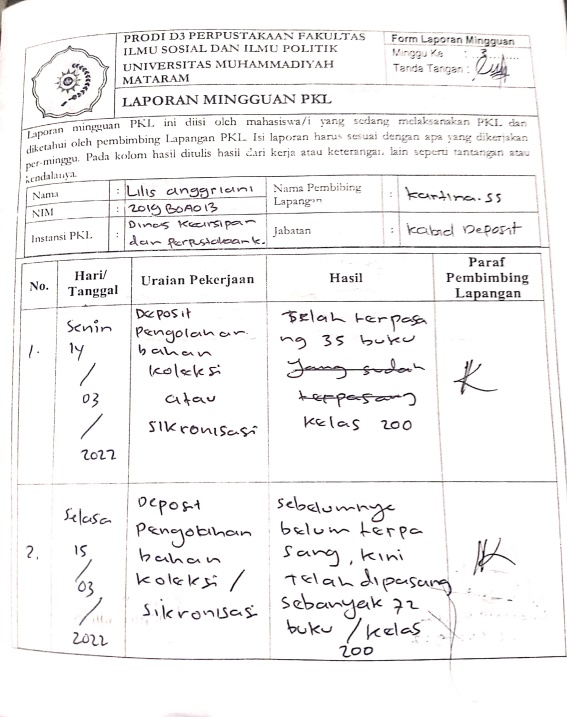 PRODI D3 PERPUSTAKAAN FAKULTAS
ILMU SOSIAL DAN ILMU POLITIK
UNIVERSITAS MUHAMMADIYAH
MATARAM
LAPORAN MINGGUAN PKL
Form Laporan Mingguan
Minggu Ke : 3
Tanda Tangan :
Laporan mingguan PKL ini diisi oleh mahasiswa/i yang sedang melaksanakan PKL dan
diketahui oleh pembimbing Lapangan PKL. Isi laporan harus sesuai dengan apa yang dikerjakan
per-minggu. Pada kolom hasil ditulis hasil dari kerja atau keterangan lain seperti tantangan atau
kendalanya.
Nama : Lilis anggriani
Nama Pembibing
Lapangan : kartina.ss
NIM : 2019B0A013
Instansi PKL : Dinas Kearsipan
dan Perpustakaan k.
Jabatan : kabid Deposit
No.
Hari/
Tanggal
Uraian Pekerjaan
Hasil
Paraf
Pembimbing
Lapangan
1.
Senin
14
/
03
/
2022
Deposit
Pengolahan
bahan
koleksi
atau
sikronisasi
Telah terpasa
ng 35 buku
yang sudah
terpasang
kelas 200
2.
Selasa
15
/
03
/
2022
Deposit
Pengolahan
bahan
koleksi /
sikronisasi
sebelumnye
belum terpa
sang, kini
Telah dipasang
sebanyak 72
buku / kelas
200